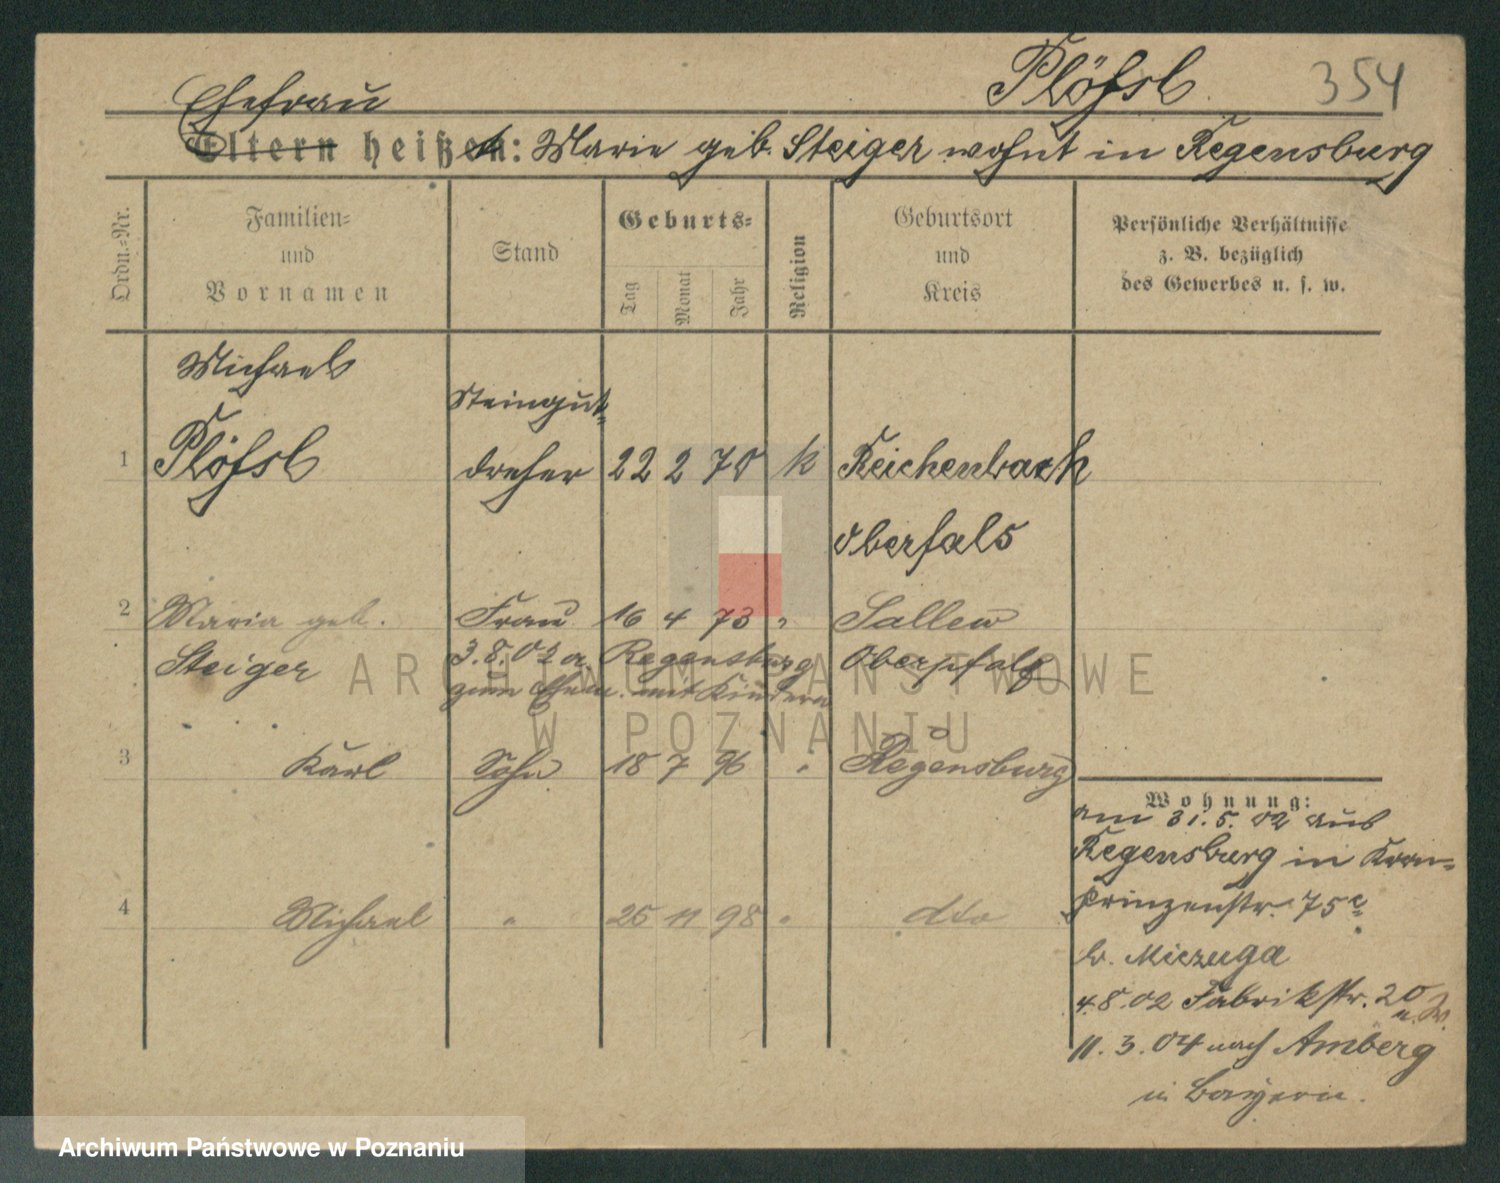 Plößl 354
Ehefrau
Eltern heißen: Marie geb. Steiger wohnt in Regensburg
Ordn.-Nr.
Familien-
und
Vornamen
Stand
Geburts-
Tag
Monat
Jahr
Religion
Geburtsort
und
Kreis
Persönliche Verhältnisse
z. B. bezüglich
des Gewerbes u. s. w.
Michael
Steingut-
1 Plößl dreher 22 2 70 k Reichenbach
Oberfals
2 Maria geb. Frau 16 4 73 " Sallew
Steiger 3.8.02 a. Regensburg Oberpfalz
zum Ehem. mit Kindern
3 Karl Sohn 18 7 96 " Regensburg
4 Michael " 25 11 98 " dto
Wohnung:
am 31.5.02 aus
Regensburg in Kron-
prinzenstr. 75c
b. Miezuga
4.8.02 Fabrikstr. 20
11.3.04 nach Amberg
in Bayern.
ARCHIWUM PAŃSTWOWE
W POZNANIU
Archiwum Państwowe w Poznaniu